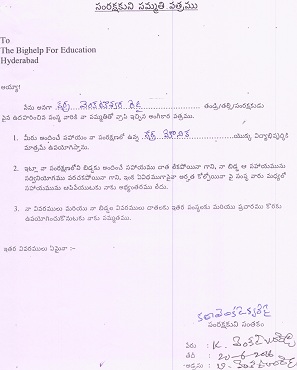 సంరక్షకుని సమ్మతి పత్రము
To
The Bighelp For Education
Hyderabad
అయ్యా!
నేను అనగా కర్రి వెంకటేశ్వర రెడ్డి తండ్రి/తల్లి/సంరక్షకుడు
పైన ఉదహరించిన సంస్థ వారికి నా సమ్మతితో వ్రాసి ఇచ్చిన అంగీకార పత్రము.
1. మీరు అందించే సహాయం నా సంరక్షణలో ఉన్న కర్రి యొక్క విద్యాభివృద్ధికి
మాత్రమే ఉపయోగిస్తాను.
2. ఇట్లా నా సంరక్షణలోని బిడ్డకు అందించే సహాయము దాత లేకపోయినా గాని, నా బిడ్డ ఆ సహాయమును
సద్వినియోగము పరచకపోయినా గాని, ఇంక ఏవిధముగానైనా అర్హత కోల్పోయినా పై సంస్థ వారు మధ్యలో
సహాయమును ఆపివేయుటకు నాకు అభ్యంతరము లేదు.
3. నా వివరములు మరియు నా బిడ్డల వివరములు దాతలకు ఇతర సంస్థలకు మరియు ప్రచారము కొరకు
ఉపయోగించుకొనుటకు నాకు సమ్మతము.
ఇతర వివరములు ఏమైనా :-
సంరక్షకుని సంతకం
పేరు : K.
తేది : 20-6-2016